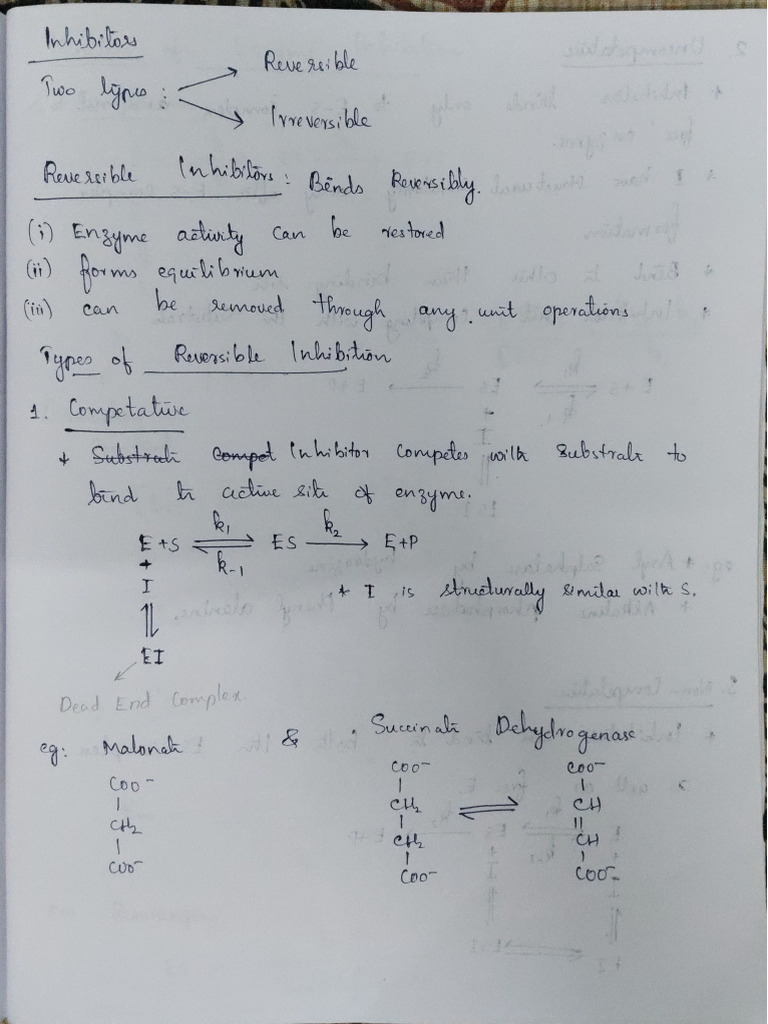 Inhibitors
Reversible
Two types :
Irreversible
Reversible Inhibitors : Binds Reversibly.
(i) Enzyme activity can be restored
(ii) forms equilibrium
(iii) can be removed through any unit operations
Types of Reversible Inhibition
1. Competative
* Substrate Compet Inhibitor competes with substrate to
bind to active site of enzyme.
E + S ⇌ ES → E+P
k1 k-1 k2
+
I
* I is structurally similar with S.
⇌
EI
Dead End Complex
eg: Malonate & Succinate Dehydrogenase
COO⁻ COO⁻ COO⁻
CH2 CH2 ⇌ CH
COO⁻ CH2 CH
COO⁻ COO⁻